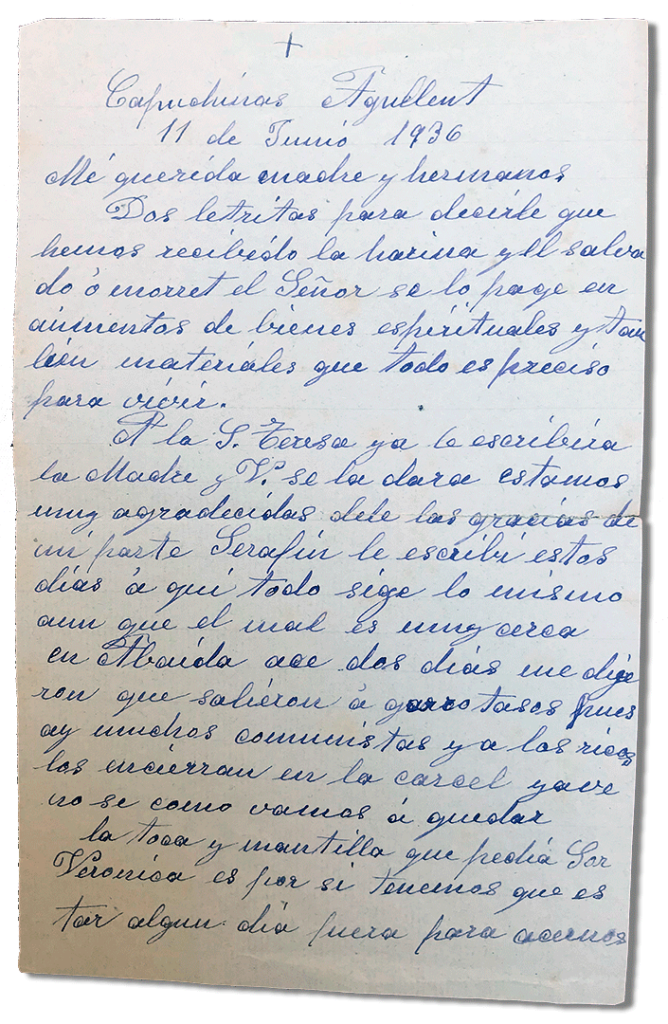 +
Capuchinas Agullent
11 de Junio 1936
Mi querida madre y hermanos
Dos letritas para decirle que
hemos recibido la harina y el salva
do ó morret el Señor se lo page en
aumentos de bienes espirituales y tan
bien materiales que todo es preciso
para vivir.
A la S. Teresa ya le escribira
la Madre y V. se la dara estamos
muy agradecidas dele las gracias de
mi parte Serafin le escribi estos
dias á qui todo sige lo mismo
aun que el mal es muy cerca
en Albaida ace dos dias me dige
ron que salieron á garrotasos pues
ay muchos comunistas y a los ricos
los encierran en la carcel ya ve
no se como vamos á quedar
la toca y mantilla que pedia Sor
Veronica es por si tenemos que es
tar algun dia fuera para acernos